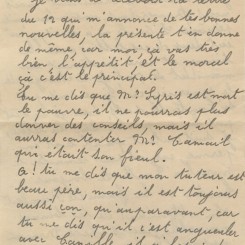 je vous
du 12 qui m'annonce de tes bonnes
nouvelles, la présente t'en donne
de même, car moi, ça vas très
bien, l'appétit, et le morcel
çà c'est le principal.
Tu me dis que Mr Syris est mort
le pauvre, il ne pourras plus
donner des conseils, mais il
auras contenter Mr Camail
qui était son fieul.
A! tu me dis que mon tuteur est
beau père, mais il est toujours
aussi con, qu'auparavant, car
tu me dis qu'il c'est angueuler
avec